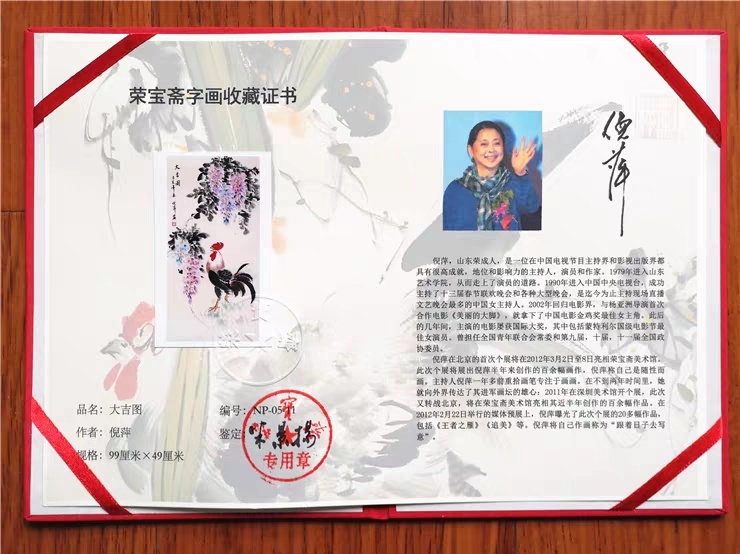 荣宝斋字画收藏证书
大吉图
品名：大吉图
作者：倪萍
规格：99厘米×49厘米
编号：NP-0511
鉴定：
专用章
倪萍
倪萍，山东荣成人，是一位在中国电视节目主持界和影视出版界都
具有很高成就，地位和影响力的主持人，演员和作家。1979年进入山东
艺术学院，从而走上了演员的道路。1990年进入中国中央电视台，成功
主持了十三届春节联欢晚会和各种大型晚会，是迄今为止主持现场直播
文艺晚会最多的中国女主持人。2002年回归电影界，与杨亚洲导演首次
合作电影《美丽的大脚》，就拿下了中国电影金鸡奖最佳女主角。此后
的几年间，主演的电影屡获国际大奖，其中包括蒙特利尔国级电影节最
佳女演员。曾担任全国青年联合会常委和第九届，十届，十一届全国政
协委员。
倪萍在北京的首次个展将在2012年3月2日至8日亮相荣宝斋美术馆。
此次个展将展出倪萍半年来创作的百余幅画作。倪萍称自己是随性而
画，主持人倪萍一年多前重拾画笔专注于画画，在不到两年时间里，她
就向外界传达了其进军画坛的雄心：2011年在深圳美术馆开个展。此次
又转战北京，将在荣宝斋美术馆亮相近半年创作的百余幅作品。在
2012年2月22日举行的媒体预展上，倪萍曝光了此次个展的20多幅作品，
包括《王者之雁》《追美》等。倪萍将自己作画称为“跟着日子去写
意”。